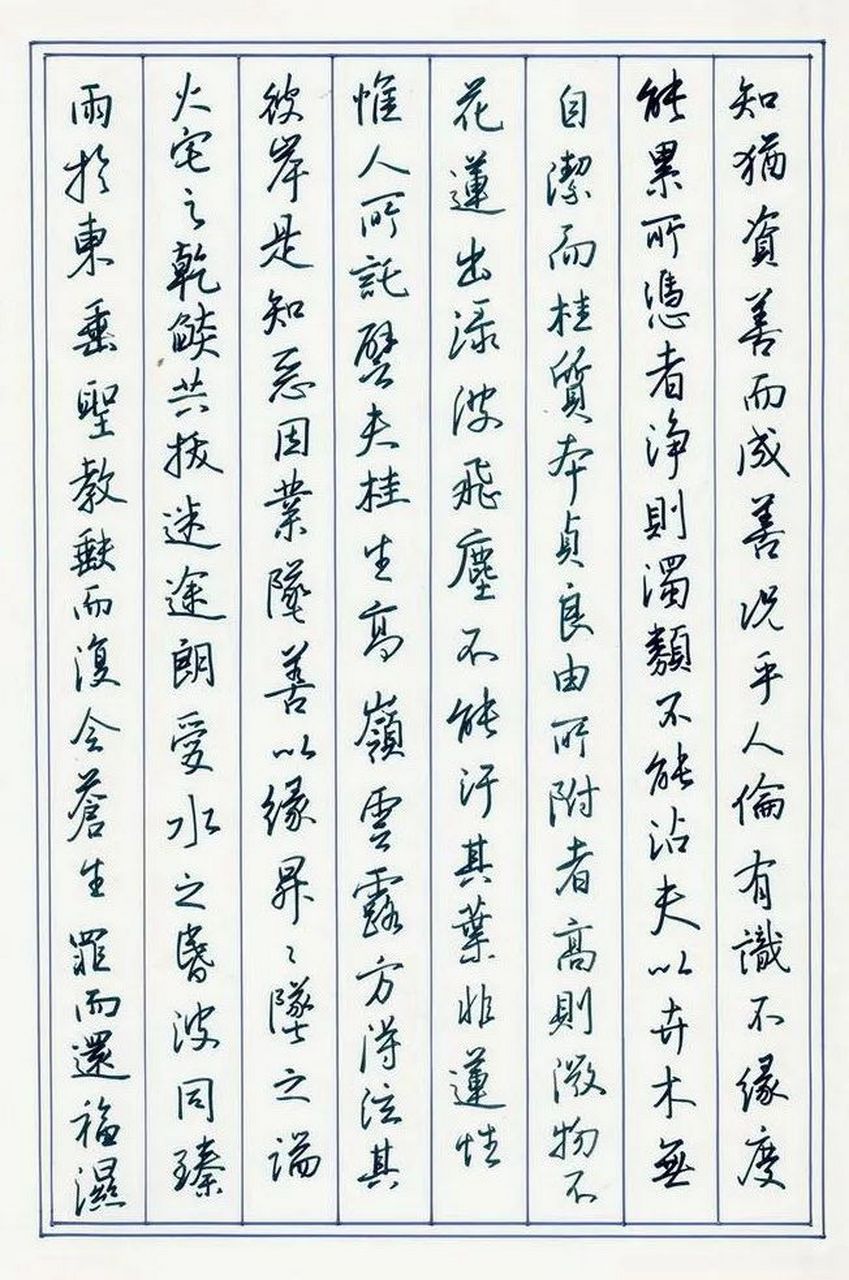 雨於東垂聖教缺而復全蒼生罪而還福濕
火宅之乾焰共拔迷途朗愛水之昬波同臻
彼岸是知惡因業墜善以緣昇〻墜之端
惟人所託譬夫桂生高嶺雲露方得泫其
花蓮出淥波飛塵不能汙其葉非蓮性
自潔而桂質本貞良由所附者高則微物不
能累所憑者浄則濁類不能沾夫以卉木無
知猶資善而成善況乎人倫有識不緣慶